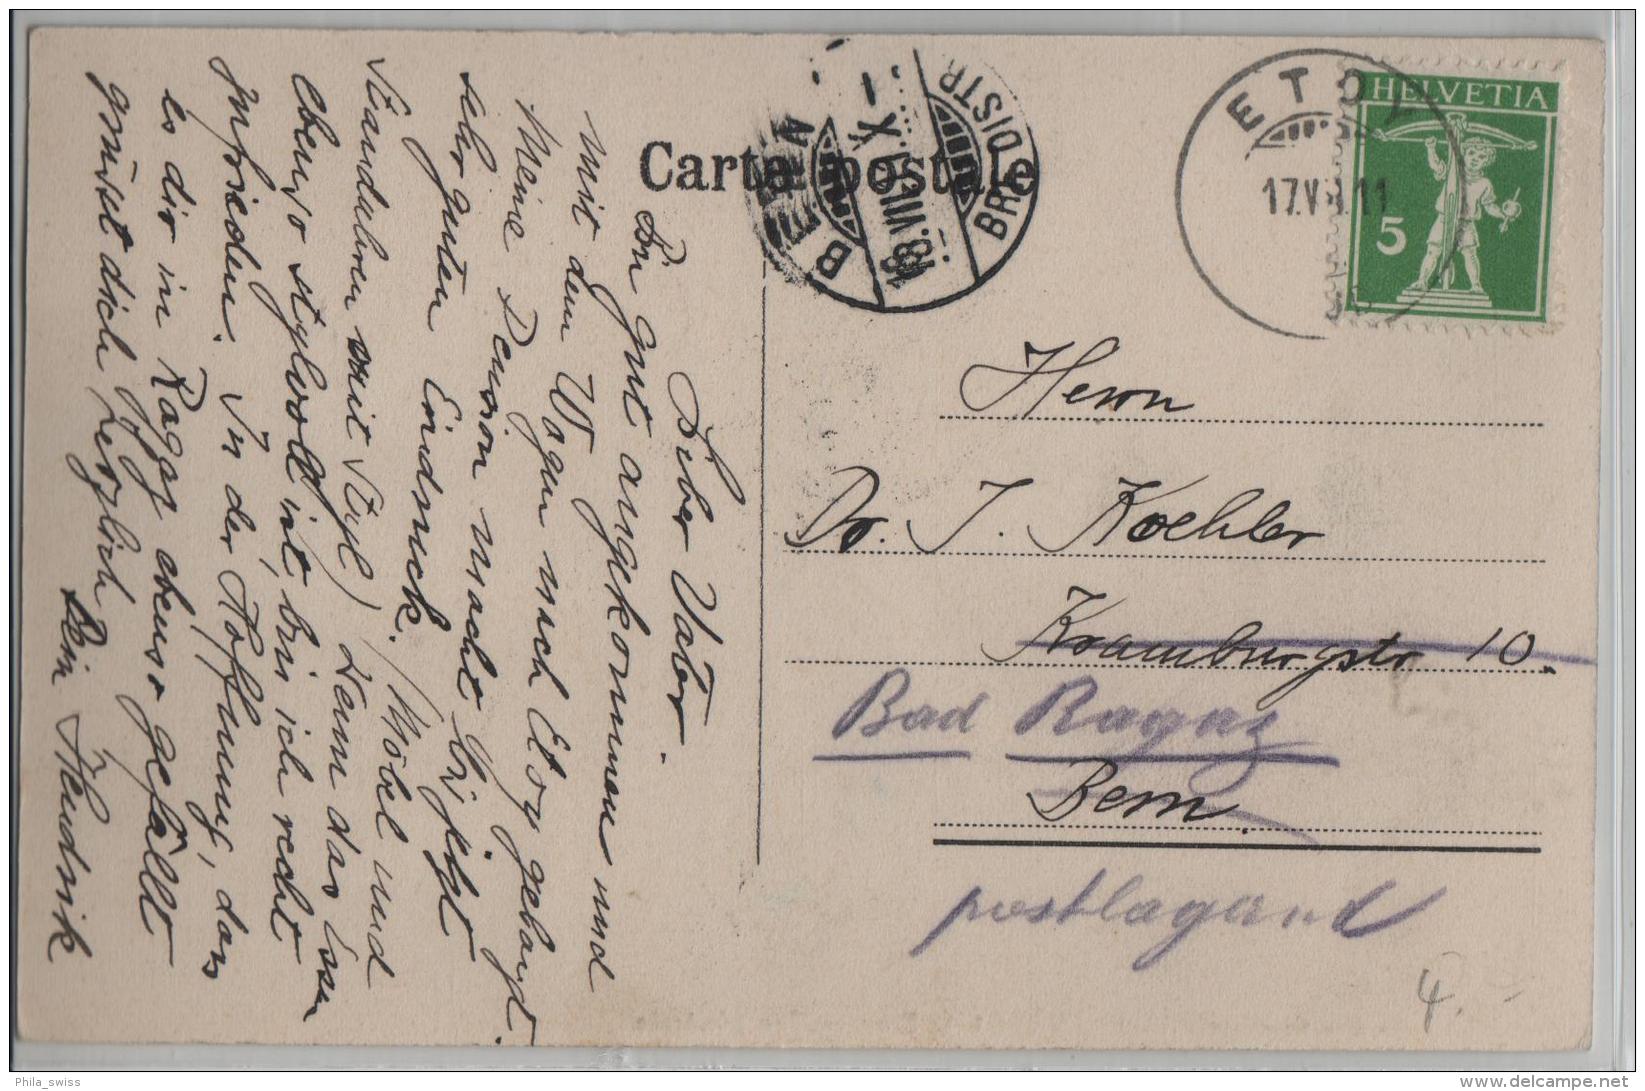 Carte postale
ETOY
17.VII.11
HELVETIA
5
BERN
BRFDISTR
18.VII.11.X
Lieber Vater.
Bin gut angekommen und
mit dem Wagen nach Etoy gebracht.
Meine Pension macht bis jetzt
sehr guten Eindruck. (Möbel und
Standuhren mit Styl) Wenn das Essen
ebenso stylvoll ist, bin ich recht
zufrieden. In der Hoffnung, dass
es dir in Ragaz ebenso gefällt
grüsst dich herzlich
Dein Hendrik
Herrn
Dr. J. Koehler
Kramburgstr 10.
Bad Ragaz
Bern.
postlagernd
4.-
Phila_swiss
delcampe.net